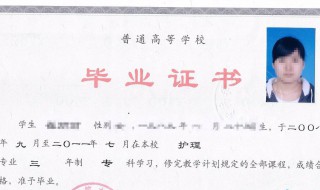 普通高等学校
毕业证书
学生 性别 生，于二〇〇
年 九 月至二〇一一年 七 月在本校 护理
专业 三 年制 专 科学习，修完教学计划规定的全部课程，成绩合
格，准予毕业。